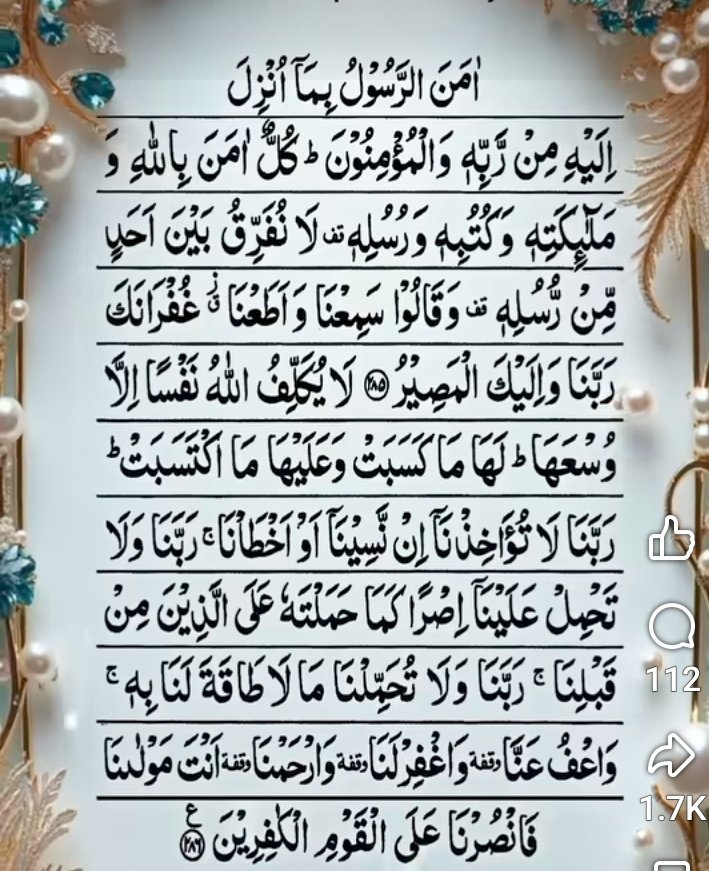 اٰمَنَ الرَّسُوۡلُ بِمَاۤ اُنۡزِلَ
اِلَيۡهِ مِنۡ رَّبِّهٖ وَالۡمُؤۡمِنُوۡنَ‌ؕ كُلٌّ اٰمَنَ بِاللّٰهِ وَ
مَلٰٓٮِٕكَتِهٖ وَكُتُبِهٖ وَرُسُلِهٖ قف لَا نُفَرِّقُ بَيۡنَ اَحَدٍ
مِّنۡ رُّسُلِهٖ قف وَقَالُوۡا سَمِعۡنَا وَاَطَعۡنَا ق غُفۡرَانَكَ
رَبَّنَا وَاِلَيۡكَ الۡمَصِيۡرُ ﴿۲۸۵﴾ لَا يُكَلِّفُ اللّٰهُ نَفۡسًا اِلَّا
وُسۡعَهَا ؕ لَهَا مَا كَسَبَتۡ وَعَلَيۡهَا مَا اكۡتَسَبَتۡ ؕ
رَبَّنَا لَا تُؤَاخِذۡنَاۤ اِنۡ نَّسِيۡنَاۤ اَوۡ اَخۡطَاۡنَا ۚ رَبَّنَا وَلَا
تَحۡمِلۡ عَلَيۡنَاۤ اِصۡرًا كَمَا حَمَلۡتَهٗ عَلَى الَّذِيۡنَ مِنۡ
قَبۡلِنَا ۚ رَبَّنَا وَلَا تُحَمِّلۡنَا مَا لَا طَاقَةَ لَنَا بِهٖ ۚ
وَاعۡفُ عَنَّا وقفة وَاغۡفِرۡ لَنَا وقفة وَارۡحَمۡنَا وقفة اَنۡتَ مَوۡلٰٮنَا
فَانۡصُرۡنَا عَلَى الۡقَوۡمِ الۡكٰفِرِيۡنَ ﴿۲۸۶﴾ ع
112
1.7K